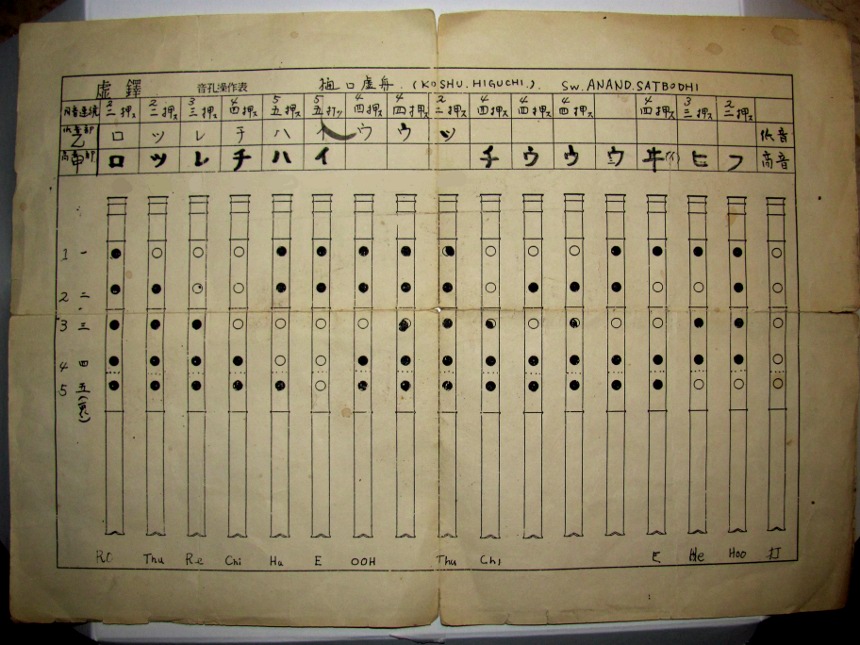 虚鐸 音孔操作表 樋口虚舟.(KOSHU.HIGUCHI.). SW.ANAND.SATBODHI
3 2 3 4 5 5 4 4 2 4 4 4 4 3 2
同音連続 三押ス 二押ス 三押ス 四押ス 五押ス 五打ツ 四押ス 四押ス 二押ス 四押ス 四押ス 四押ス 四押ス 三押ス 二押ス
乙 ロ ツ レ チ ハ イ ウ ウ ツ 低音
甲 ロ ツ レ チ ハ イ チ ウ ウ ウ ヰ(イ) ヒ フ 高音
1 一
2 二
3 三
4 四
5 五(裏)
RO Thu Re Chi Ha E OOH Thu Chi ヒ He Hoo 打